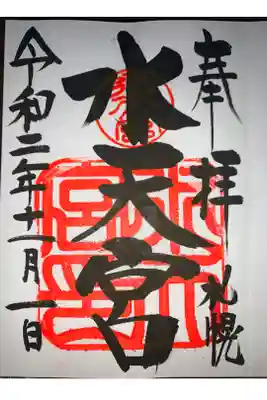 奉拝 札幌
水天宮
令和二年十一月一日